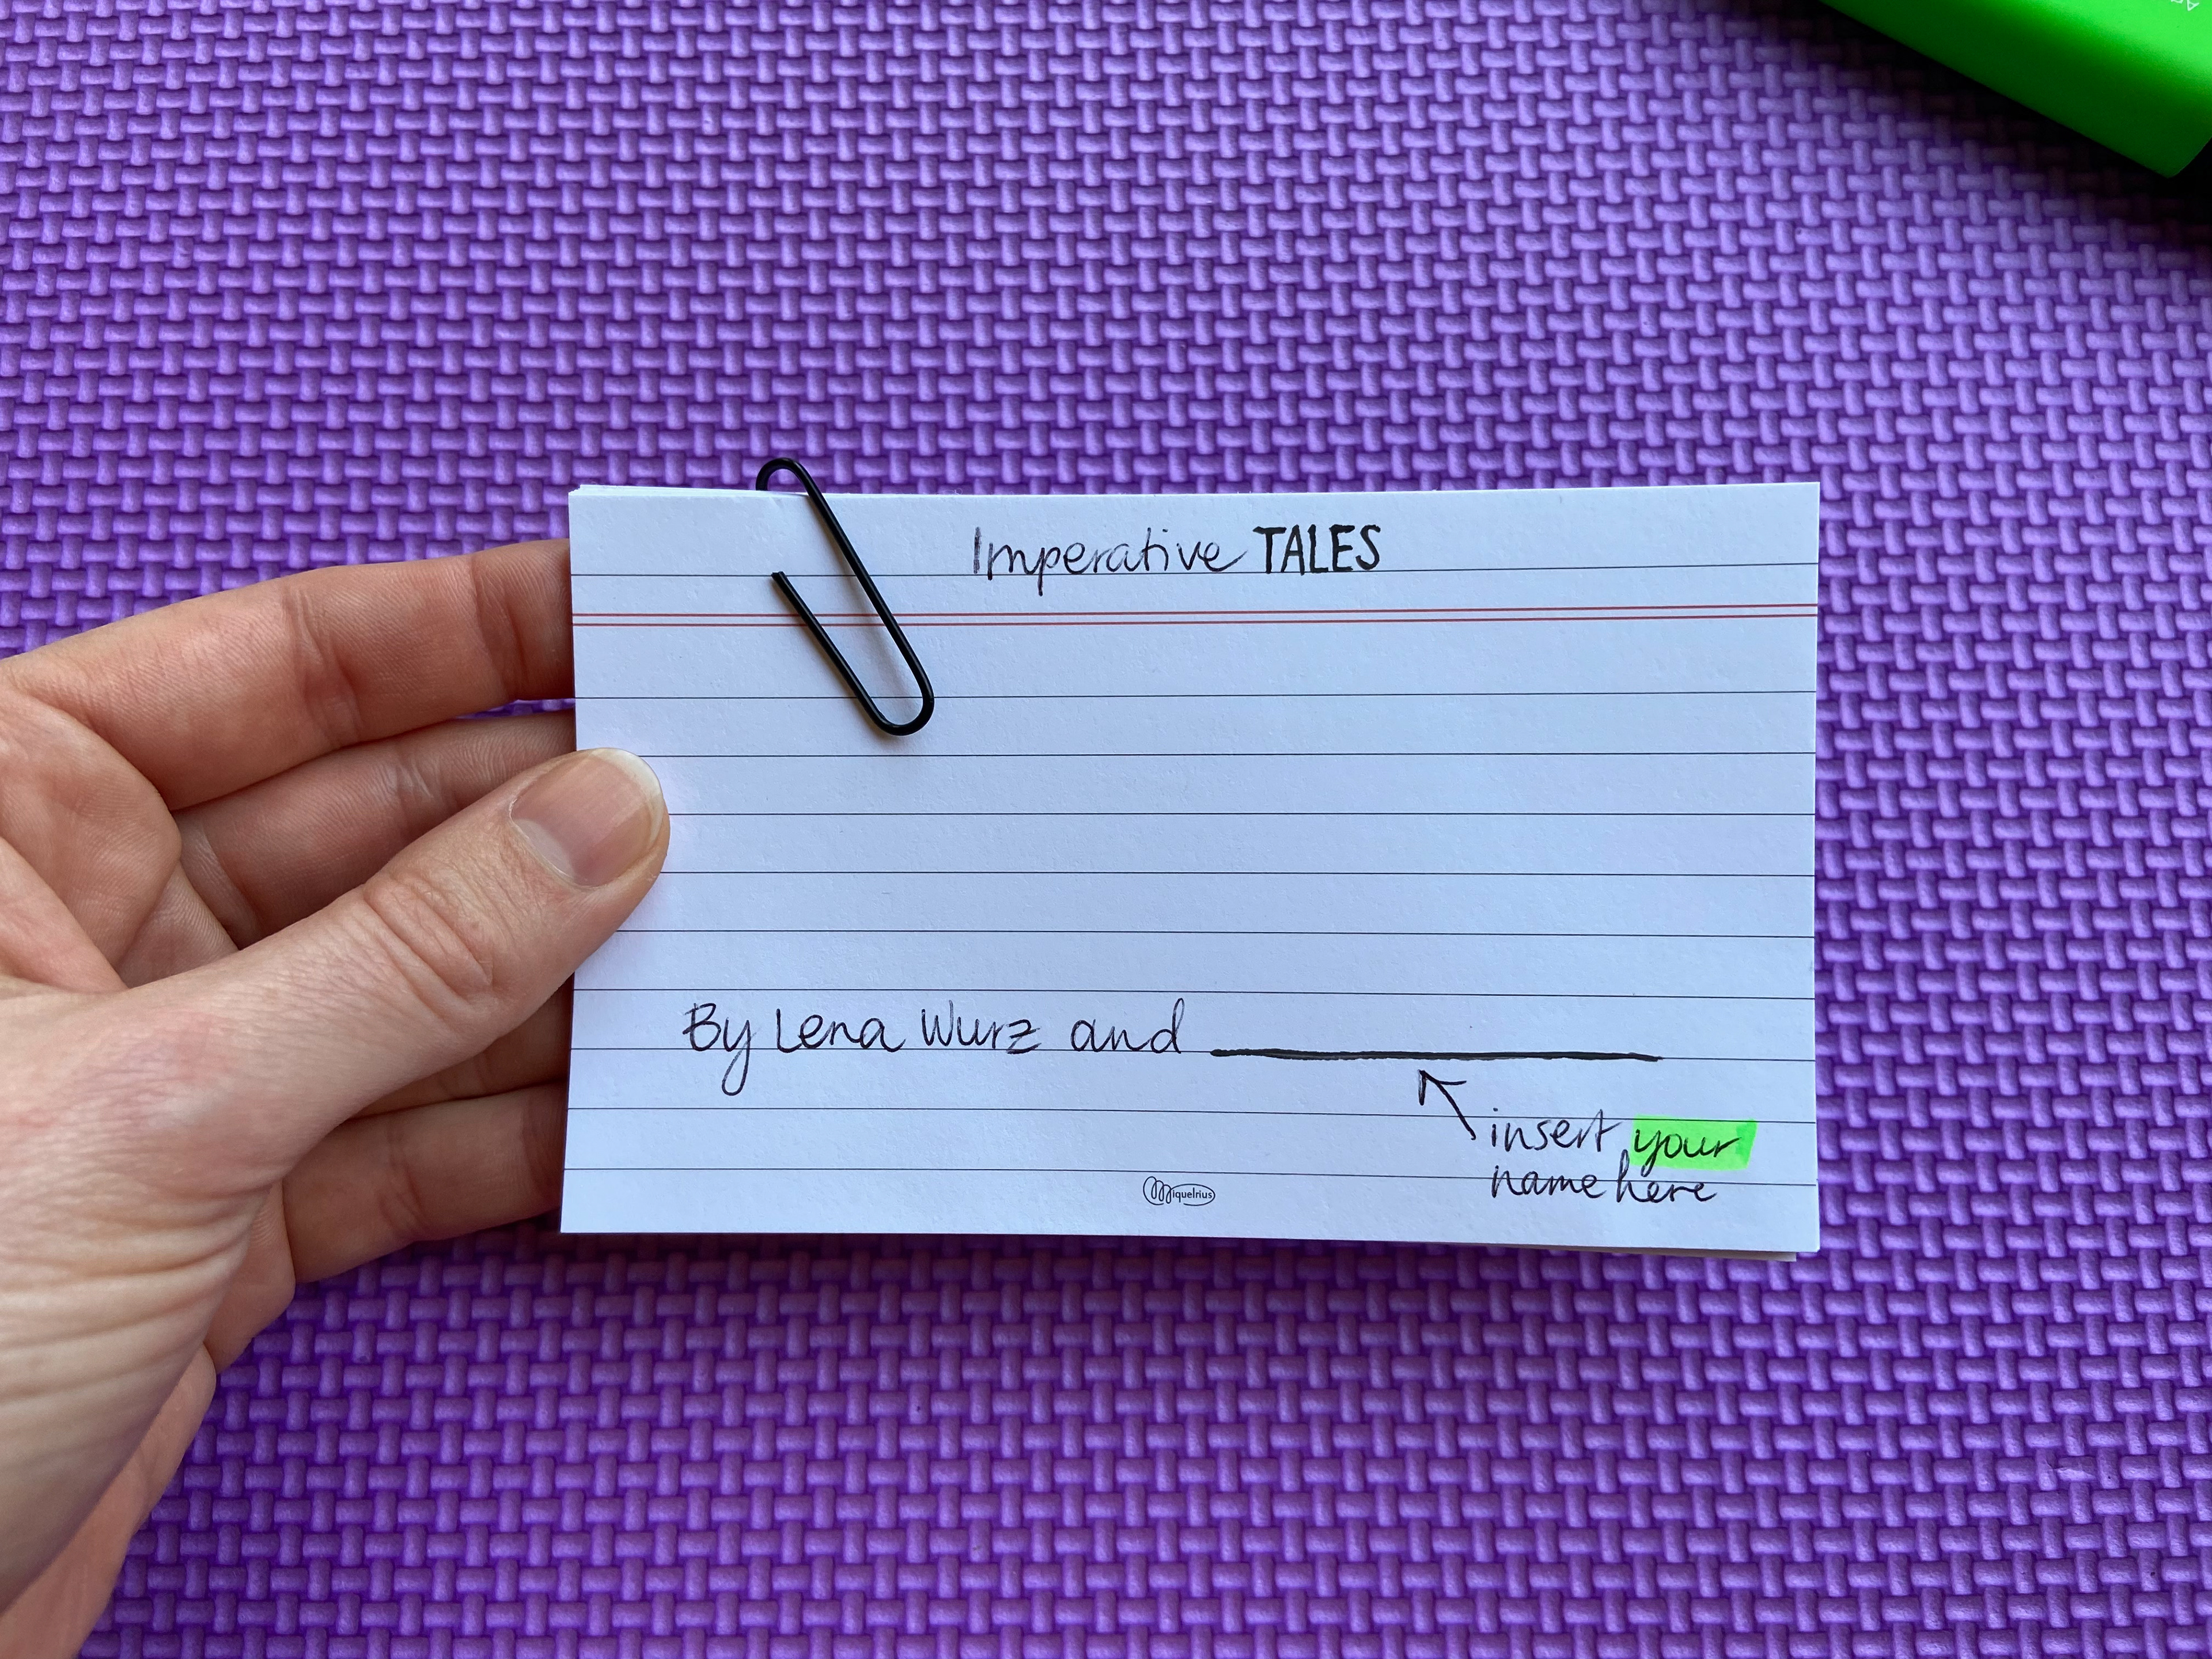 Imperative TALES
By Lena Wurz and
insert your
name here
Miquelrius